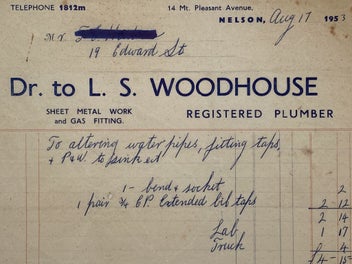 TELEPHONE 1812m
14 Mt. Pleasant Avenue,
NELSON, Aug 17 1953
Mr.
19 Edward St
Dr. to L. S. WOODHOUSE
SHEET METAL WORK and GAS FITTING.
REGISTERED PLUMBER
To altering water pipes, fitting taps,
& P&W to sink est
1 - bend & socket 2
1 pair ¾ CP. Extended bib taps 2 12
2 14
Lab 1 17
Truck 0 4
£4 - 15